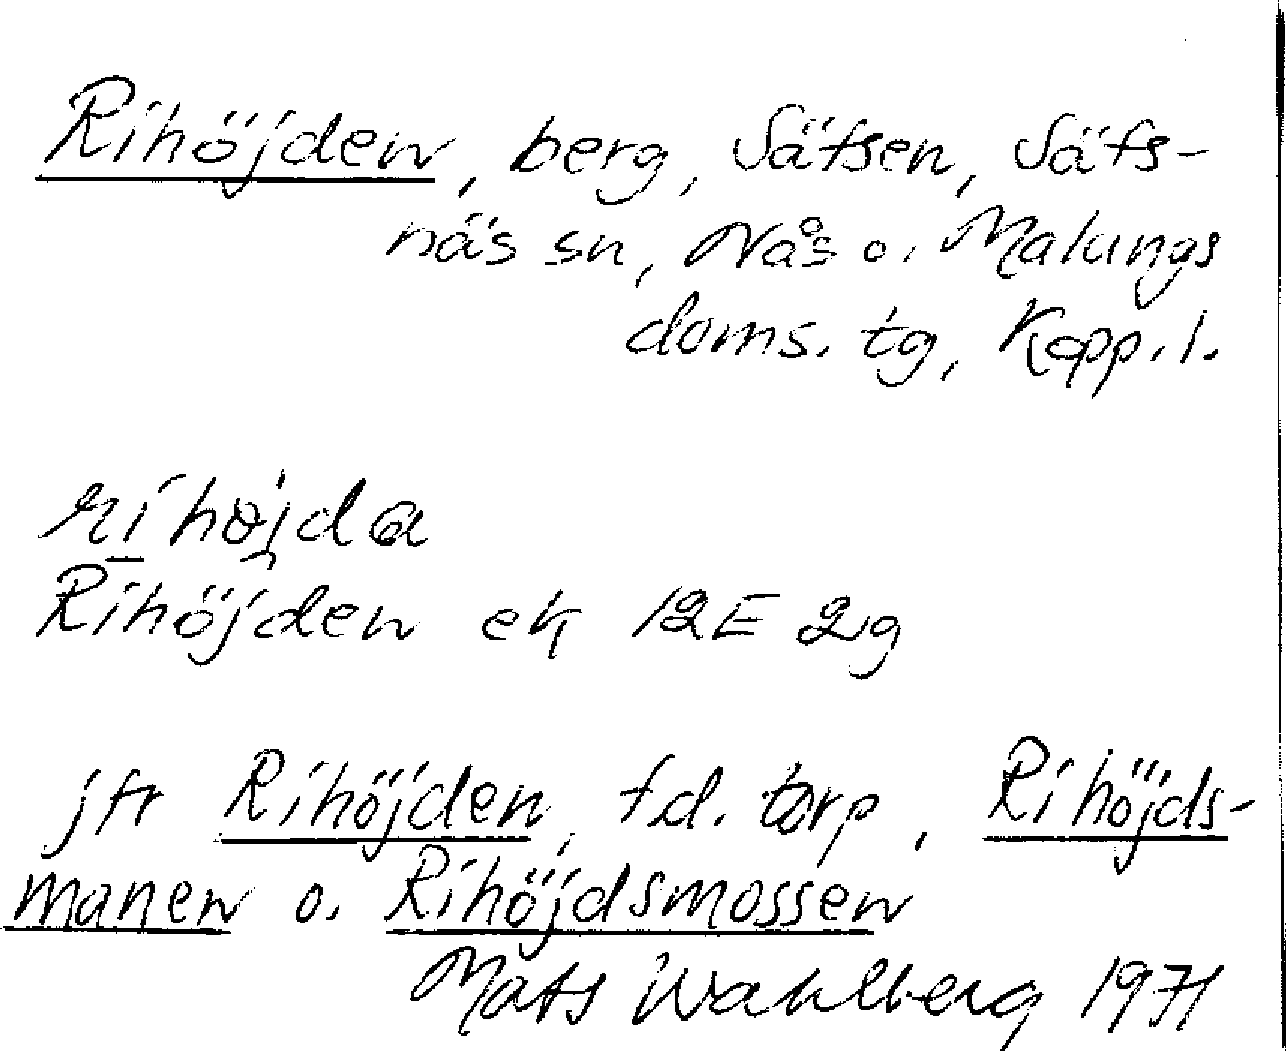 Rihöjden, berg, Säfsen, Säfs-
näs sn, Nås o. Malungs
doms. tg, Kopp. l.
Rihöjden ek 12E 2g
jfr Rihöjden, f.d. torp, Rihöjds-
manen o. Rihöjdsmossen
Mats Wahlberg 1971